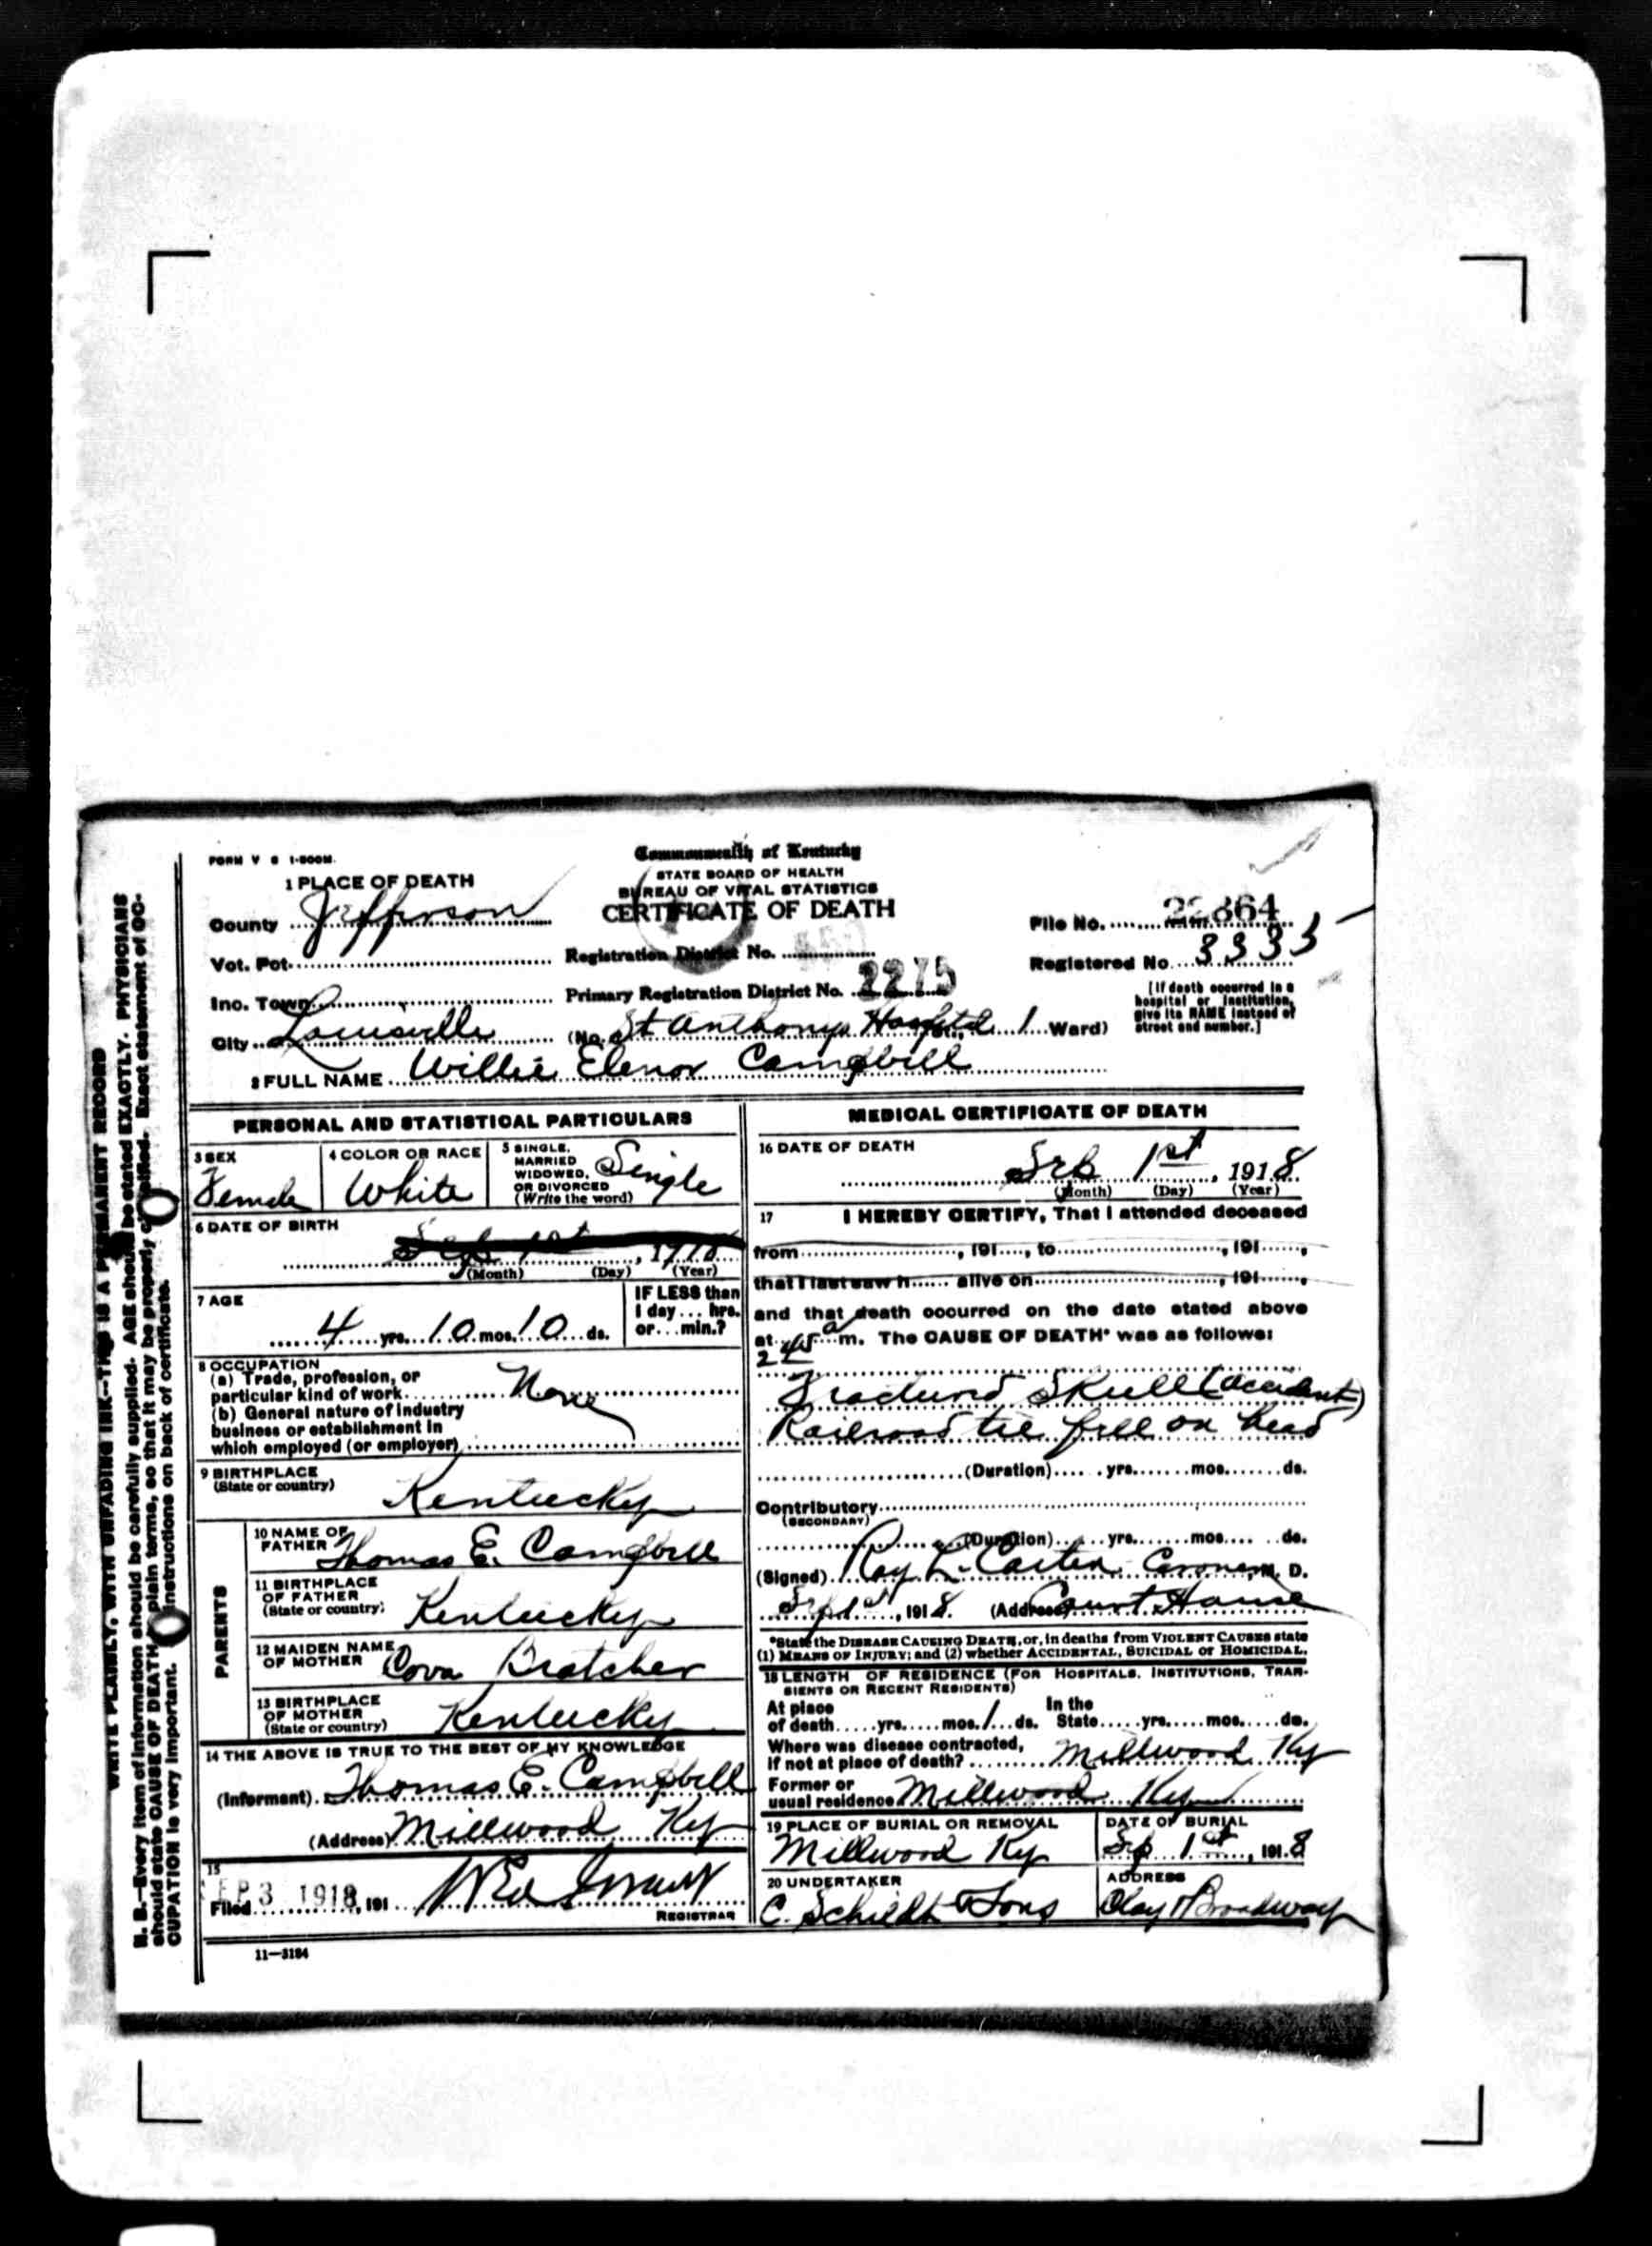 FORM V S 1-500M.
Commonwealth of Kentucky
STATE BOARD OF HEALTH
BUREAU OF VITAL STATISTICS
CERTIFICATE OF DEATH
1 PLACE OF DEATH
County Jefferson
Vot. Pct.
Inc. Town
City Louisville
Registration District No.
Primary Registration District No. 2275
(No. St Anthonys Hospital St., 1 Ward)
File No. 22864
Registered No. 3333
[If death occurred in a
hospital or institution,
give its NAME instead of
street and number.]
2 FULL NAME Willie Elenor Campbell
PERSONAL AND STATISTICAL PARTICULARS
3 SEX
Female
4 COLOR OR RACE
White
5 SINGLE,
MARRIED
WIDOWED,
OR DIVORCED
(Write the word)
Single
6 DATE OF BIRTH
(Month) (Day) (Year)
7 AGE
4 yrs. 10 mos. 10 ds.
IF LESS than
1 day ... hrs.
or ... min.?
8 OCCUPATION
(a) Trade, profession, or
particular kind of work None
(b) General nature of industry
business or establishment in
which employed (or employer)
9 BIRTHPLACE
(State or country)
Kentucky
PARENTS
10 NAME OF
FATHER Thomas E. Campbell
11 BIRTHPLACE
OF FATHER
(State or country)
Kentucky
12 MAIDEN NAME
OF MOTHER Cova Bratcher
13 BIRTHPLACE
OF MOTHER
(State or country)
Kentucky
14 THE ABOVE IS TRUE TO THE BEST OF MY KNOWLEDGE
(Informant) Thomas E. Campbell
(Address) Millwood Ky
15
Filed SEP 3 1918, 191
REGISTRAR
11—3184
MEDICAL CERTIFICATE OF DEATH
16 DATE OF DEATH
1st, 1918
(Month) (Day) (Year)
17 I HEREBY CERTIFY, That I attended deceased
from , 191 , to , 191 ,
that I last saw h alive on , 191 ,
and that death occurred on the date stated above
at 2 45 a m. The CAUSE OF DEATH* was as follows:
Fractured Skull (accident)
Railroad tie fell on head
(Duration) yrs. mos. ds.
Contributory
(SECONDARY)
(Duration) yrs. mos. ds.
(Signed) Ray L. Carter Coroner, M. D.
Sept 1st, 1918. (Address) Court House
*State the DISEASE CAUSING DEATH, or, in deaths from VIOLENT CAUSES state
(1) MEANS OF INJURY; and (2) whether ACCIDENTAL, SUICIDAL or HOMICIDAL.
18 LENGTH OF RESIDENCE (FOR HOSPITALS, INSTITUTIONS, TRAN-
SIENTS OR RECENT RESIDENTS)
At place
of death yrs. mos. 1 ds.
In the
State yrs. mos. ds.
Where was disease contracted,
if not at place of death? Millwood Ky
Former or
usual residence Millwood Ky
19 PLACE OF BURIAL OR REMOVAL
Millwood Ky
DATE OF BURIAL
Sep 1st, 1918
20 UNDERTAKER
C. Schildt & Sons
ADDRESS
Clay & Broadway
WRITE PLAINLY, WITH UNFADING INK—THIS IS A PERMANENT RECORD
N. B.—Every item of information should be carefully supplied. AGE should be stated EXACTLY. PHYSICIANS
should state CAUSE OF DEATH in plain terms, so that it may be properly classified. Exact statement of OC-
CUPATION is very important. See instructions on back of certificate.